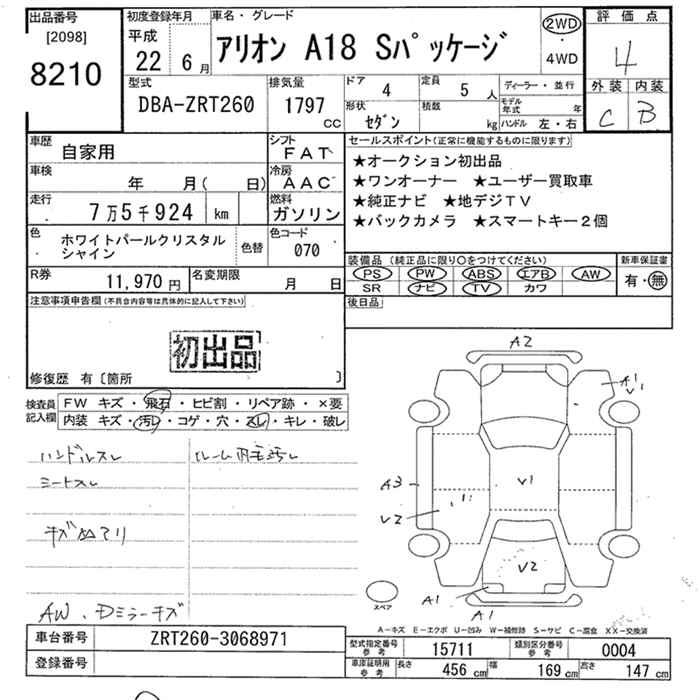 出品番号
[2098]
8210
初度登録年月
平成
22 6月
車名・グレード
アリオン A18 Sパッケージ
2WD
・
4WD
評価点
4
外装 内装
C B
型式
DBA-ZRT260
排気量
1797 CC
ドア 4
定員 5 人
形状 セダン
積載 kg
ディーラー・並行
モデル年式 年
ハンドル 左・右
車歴 自家用
シフト FAT
車検 年 月( 日)
冷房 AAC
走行 7万5千924 km
燃料 ガソリン
色 ホワイトパールクリスタルシャイン
色替
色コード 070
R券 11,970 円
名変期限 月 日
セールスポイント(正常に機能するものに限ります)
★オークション初出品
★ワンオーナー ★ユーザー買取車
★純正ナビ ★地デジTV
★バックカメラ ★スマートキー2個
装備品 (純正品に限り○をつけてください)
PS PW ABS エアB AW
SR ナビ TV カワ
新車保証書
有・無
後日品
注意事項申告欄(不具合内容等は具体的に記入して下さい)
初出品
修復歴 有〔箇所 〕
検査員記入欄
FW キズ・飛石・ヒビ割・リペア跡・×要
内装 キズ・汚レ・コゲ・穴・スレ・キレ・破レ
ハンドルスレ
ルーム内毛汚レ
シートスレ
キズ
AW.Dミラーキズ
A2
A1
V1
A3
V2
V1
V2
A1
A1
スペア
A―キズ E―エクボ U―凹み W―補修跡 S―サビ C―腐食 XX―交換済
車台番号 ZRT260-3068971
登録番号
型式指定番号 参考 15711
類別区分番号 参考 0004
車庫証明用 参考
長さ 456 cm
幅 169 cm
高さ 147 cm